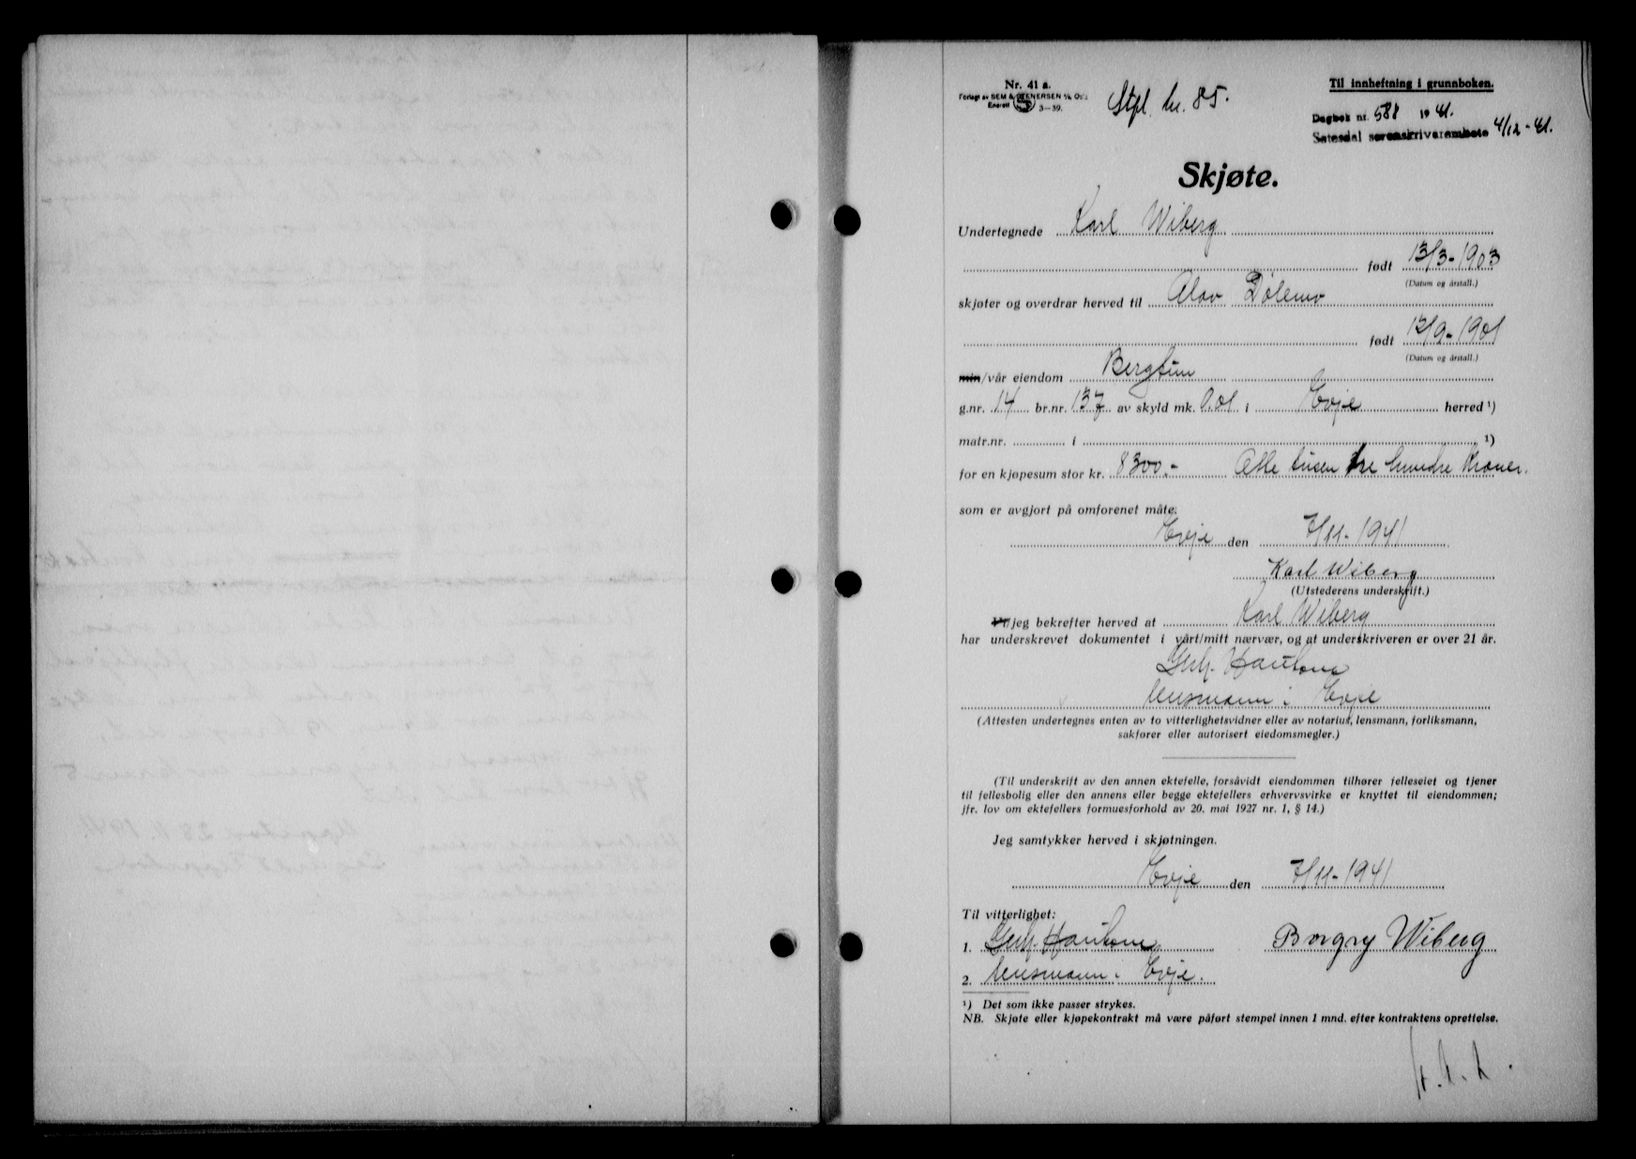 Nr. 41 a.
Forlagt av SEM & STENERSEN A/S Oslo
Enerett 3—39.
Stpl. kr. 85.
Til innheftning i grunnboken.
Dagbok nr. 588 19 41.
Setesdal sorenskriverembete 4/12-41.
Skjøte.
Undertegnede Karl Wiberg
født 13/3-1903
(Datum og årstall.)
skjøter og overdrar herved til Olav Dölemo
født 12/9-1901
(Datum og årstall.)
min/vår eiendom Bergtun
g.nr. 14 br.nr. 137 av skyld mk. 0.01 i Evje herred ¹)
matr.nr. i ¹)
for en kjøpesum stor kr. 8300.- Otte tusen tre hundre Kroner.
som er avgjort på omforenet måte.
Evje den 7/11-1941
Karl Wiberg
(Utstederens underskrift.)
Vi/jeg bekrefter herved at Karl Wiberg
har underskrevet dokumentet i vårt/mitt nærvær, og at underskriveren er over 21 år.
lensmann i Evje
(Attesten undertegnes enten av to vitterlighetsvidner eller av notarius, lensmann, forliksmann,
sakfører eller autorisert eiedomsmegler.)
(Til underskrift av den annen ektefelle, forsåvidt eiendommen tilhører felleseiet og tjener
til fellesbolig eller den annens eller begge ektefellers erhvervsvirke er knyttet til eiendommen;
jfr. lov om ektefellers formuesforhold av 20. mai 1927 nr. 1, § 14.)
Jeg samtykker herved i skjøtningen.
Evje den 7/11-1941
Til vitterlighet:
1.
Borgny Wiberg
2. lensmann i Evje.
¹) Det som ikke passer strykes.
NB. Skjøte eller kjøpekontrakt må være påført stempel innen 1 mnd. efter kontraktens oprettelse.